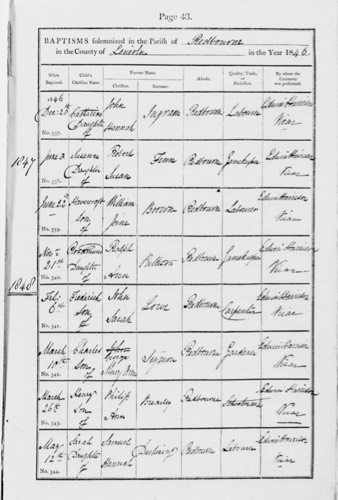 Page 43.
BAPTISMS solemnized in the Parish of Redbourne
in the County of Lincoln in the Year 1846.
When Baptized. Child's Christian Name. Parents Name. Christian. Surname. Abode. Quality, Trade, or Profession. By whom the Ceremony was performed.
1846
Dec: 26th Catherine Daughter of John Hannah Ingram Redbourne Labourer Edwin Harrison Vicar
No. 337.
1847
June 3 Susanna Daughter of Robert Susan Redbourne Gamekeeper Edwin Harrison Vicar
No. 338.
June 22 Son of William Jane Brown Redbourne Labourer Edwin Harrison Vicar
No. 339.
Nov. 21st Daughter of Ralph Ann Redbourne Gamekeeper Edwin Harrison Vicar
No. 340.
1848
Feb: 6th Frederick Son of John Sarah Lowe Redbourne Carpenter Edwin Harrison Vicar
No. 341.
March 10th Charles Son of George Mary Ann Redbourne Gardener Edwin Harrison Vicar
No. 342.
March 26th Henry Son of Philip Ann Brearley Redbourne Edwin Harrison Vicar
No. 343.
May 12th Sarah Daughter of Samuel Hannah Redbourne Labourer Edwin Harrison Vicar
No. 344.